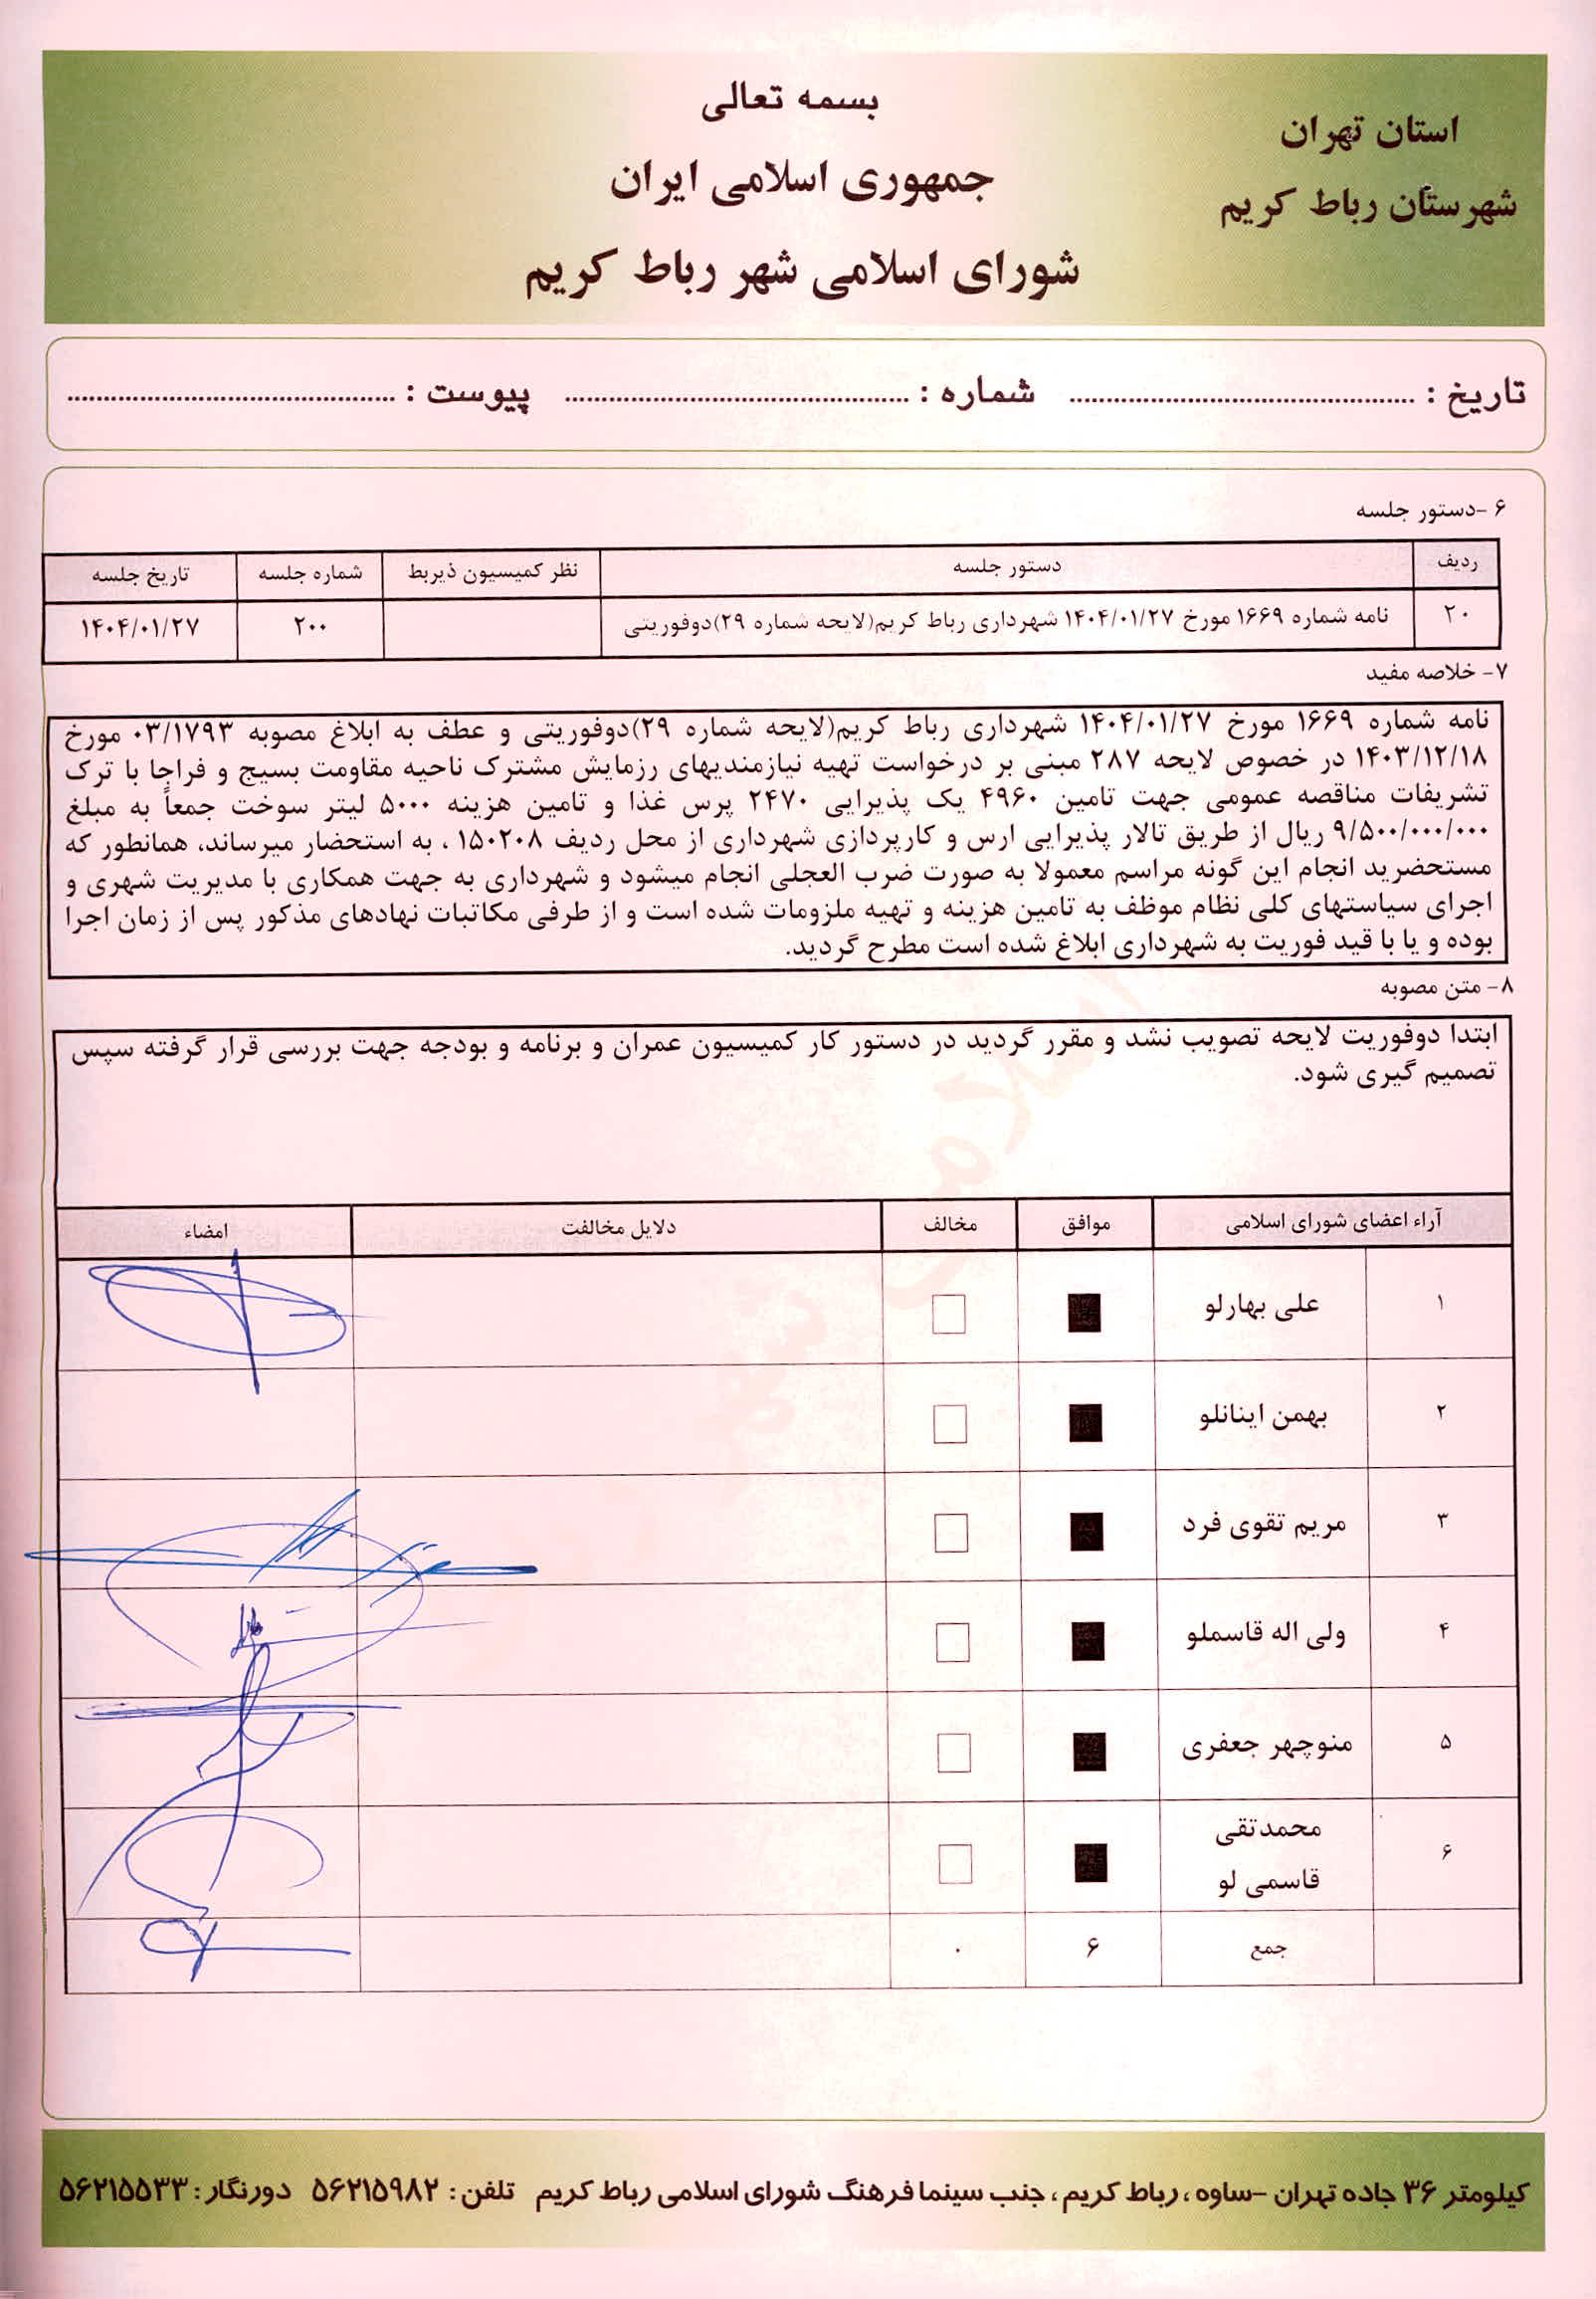 بسمه تعالی
استان تهران
جمهوری اسلامی ایران
شهرستان رباط کریم
شورای اسلامی شهر رباط کریم
تاریخ : ........................................ شماره : ........................................ پیوست : ........................................
۶ -دستور جلسه
ردیف دستور جلسه نظر کمیسیون ذیربط شماره جلسه تاریخ جلسه
۲۰ نامه شماره ۱۶۶۹ مورخ ۱۴۰۴/۰۱/۲۷ شهرداری رباط کریم(لایحه شماره ۲۹)دوفوریتی ۲۰۰ ۱۴۰۴/۰۱/۲۷
۷- خلاصه مفید
نامه شماره ۱۶۶۹ مورخ ۱۴۰۴/۰۱/۲۷ شهرداری رباط کریم(لایحه شماره ۲۹)دوفوریتی و عطف به ابلاغ مصوبه ۰۳/۱۷۹۳ مورخ
۱۴۰۳/۱۲/۱۸ در خصوص لایحه ۲۸۷ مبنی بر درخواست تهیه نیازمندیهای رزمایش مشترک ناحیه مقاومت بسیج و فراجا با ترک
تشریفات مناقصه عمومی جهت تامین ۴۹۶۰ پک پذیرایی ۲۴۷۰ پرس غذا و تامین هزینه ۵۰۰۰ لیتر سوخت جمعاً به مبلغ
۹/۵۰۰/۰۰۰/۰۰۰ ریال از طریق تالار پذیرایی ارس و کارپردازی شهرداری از محل ردیف ۱۵۰۲۰۸ ، به استحضار میرساند، همانطور که
مستحضرید انجام این گونه مراسم معمولا به صورت ضرب العجلی انجام میشود و شهرداری به جهت همکاری با مدیریت شهری و
اجرای سیاستهای کلی نظام موظف به تامین هزینه و تهیه ملزومات شده است و از طرفی مکاتبات نهادهای مذکور پس از زمان اجرا
بوده و یا با قید فوریت به شهرداری ابلاغ شده است مطرح گردید.
۸- متن مصوبه
ابتدا دوفوریت لایحه تصویب نشد و مقرر گردید در دستور کار کمیسیون عمران و برنامه و بودجه جهت بررسی قرار گرفته سپس
تصمیم گیری شود.
آراء اعضای شورای اسلامی موافق مخالف دلایل مخالفت امضاء
۱ علی بهارلو
۲ بهمن اینانلو
۳ مریم تقوی فرد
۴ ولی اله قاسملو
۵ منوچهر جعفری
۶ محمدتقی
قاسمی لو
جمع ۶ ۰
کیلومتر ۳۶ جاده تهران -ساوه ، رباط کریم ، جنب سینما فرهنگ شورای اسلامی رباط کریم تلفن : ۵۶۲۱۵۹۸۲ دورنگار : ۵۶۲۱۵۵۳۳